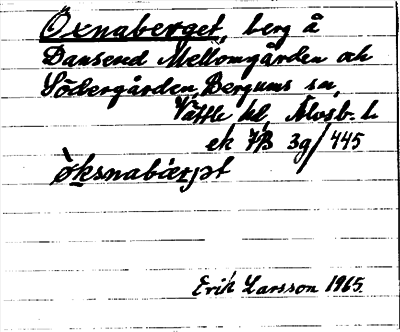 Öxnaberget, berg å
Dansered Mellomgården och
Södergården, Bergums sn,
Vättle hd, Älvsb. l.
ek 7B 3g/445
öksnabærjət
Erik Larsson 1965.